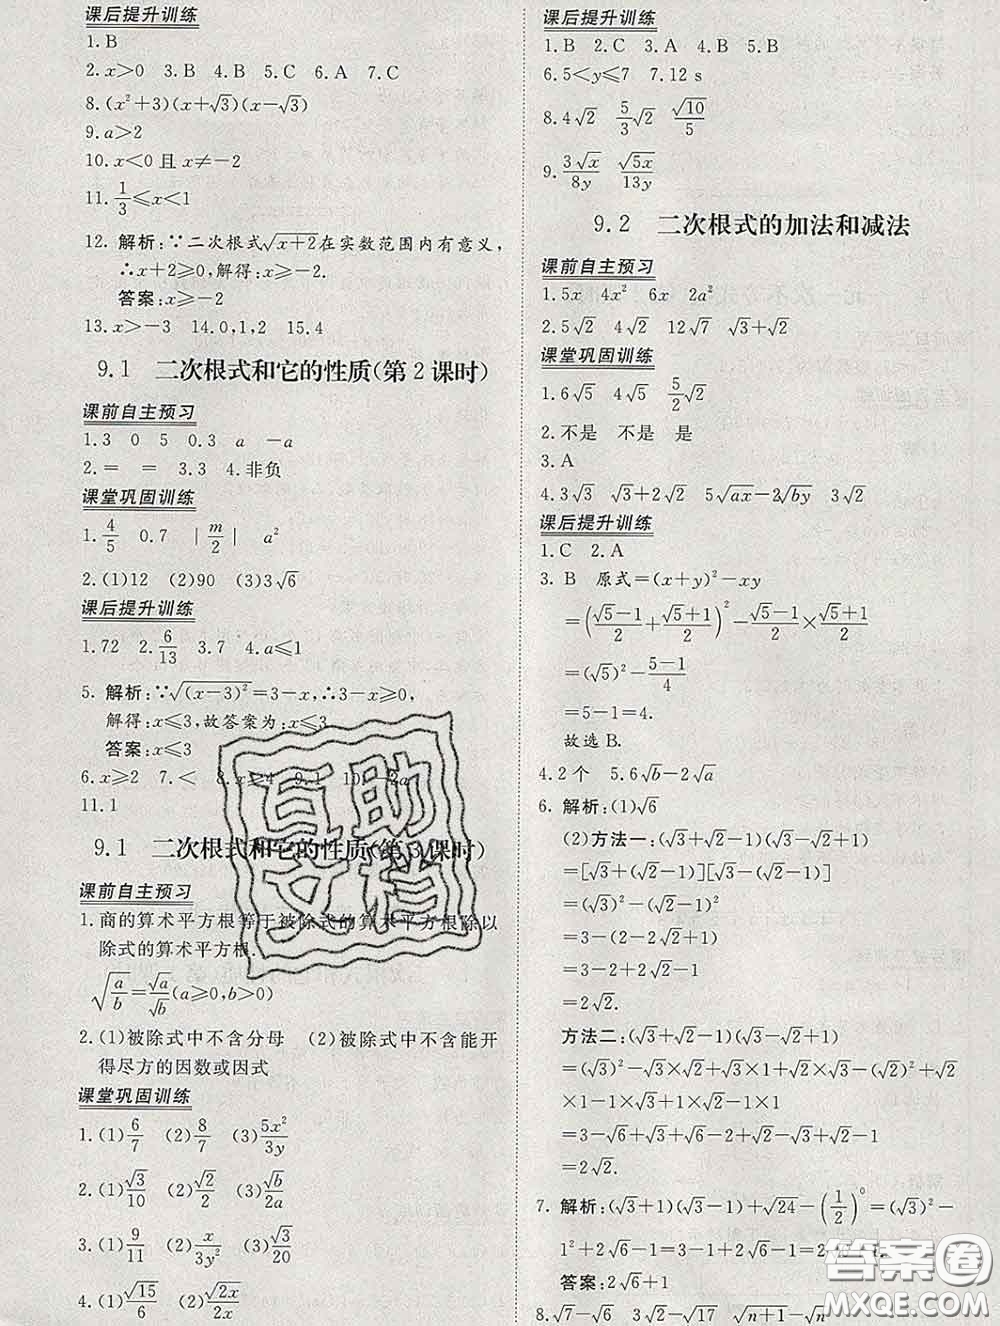 课后提升训练
1.B
2.x>0 3.B 4.B 5.C 6.A 7.C
8.(x²+3)(x+√3)(x-√3)
9.a>2
10.x<0且x≠-2
11.1/3≤x<1
12.解析:∵二次根式√(x+2)在实数范围内有意义,
∴x+2≥0,解得:x≥-2.
答案:x≥-2
13.x>-3 14.0,1,2 15.4
9.1 二次根式和它的性质(第2课时)
课前自主预习
1.3 0 5 0.3 a -a
2.= = 3.3 4.非负
课堂巩固训练
1.4/5 0.7 |m/2| a²
2.(1)12 (2)90 (3)3√6
课后提升训练
1.72 2.6/13 3.7 4.a≤1
5.解析:∵√((x-3)²)=3-x,∴3-x≥0,
解得:x≤3,故答案为:x≤3
答案:x≤3
6.x≥2 7.< 8.x≥4 9.1 10.-2a
11.1
9.1 二次根式和它的性质(第3课时)
课前自主预习
1.商的算术平方根等于被除式的算术平方根除以
除式的算术平方根.
√(a/b)=√a/√b(a≥0,b>0)
2.(1)被除式中不含分母 (2)被除式中不含能开
得尽方的因数或因式
课堂巩固训练
1.(1)6/7 (2)8/7 (3)5x²/3y
2.(1)√3/10 (2)√2/2 (3)√b/2a
3.(1)9/11 (2)x/3y² (3)√3/20
4.(1)√15/6 (2)√(2x)/2x
互助
文档
课后提升训练
1.B 2.C 3.A 4.B 5.B
6.5<y≤7 7.12 s
8.4√2 5/3√2 √10/5
9.3√x/8y √(5x)/13y
9.2 二次根式的加法和减法
课前自主预习
1.5x 4x² 6x 2a²
2.5√2 4√2 12√7 √3+√2
课堂巩固训练
1.6√5 4√5 5/2√2
2.不是 不是 是
3.A
4.3√3 √3+2√2 5√(ax)-2√(by) 3√2
课后提升训练
1.C 2.A
3.B 原式=(x+y)²-xy
=((√5-1)/2+(√5+1)/2)²-(√5-1)/2×(√5+1)/2
=(√5)²-(5-1)/4
=5-1=4.
故选B.
4.2个 5.6√b-2√a
6.解析:(1)√6
(2)方法一:(√3+√2-1)(√3-√2+1)
=[√3+(√2-1)][√3-(√2-1)]
=(√3)²-(√2-1)²
=3-(2-2√2+1)
=3-2+2√2-1
=2√2.
方法二:(√3+√2-1)(√3-√2+1)
=(√3)²-√3×√2+√3×1+√2×√3-(√2)²+√2
×1-1×√3+1×√2-1×1
=3-√6+√3+√6-2+√2-√3+√2-1
=2√2.
7.解析:(√3+1)(√3-1)+√24-(1/2)⁰=(√3)²-
1²+2√6-1=3-1+2√6-1=2√6+1.
答案:2√6+1
8.√7-√6 3√2-√17 √(n+1)-√n
答案圈
MXQE.COM